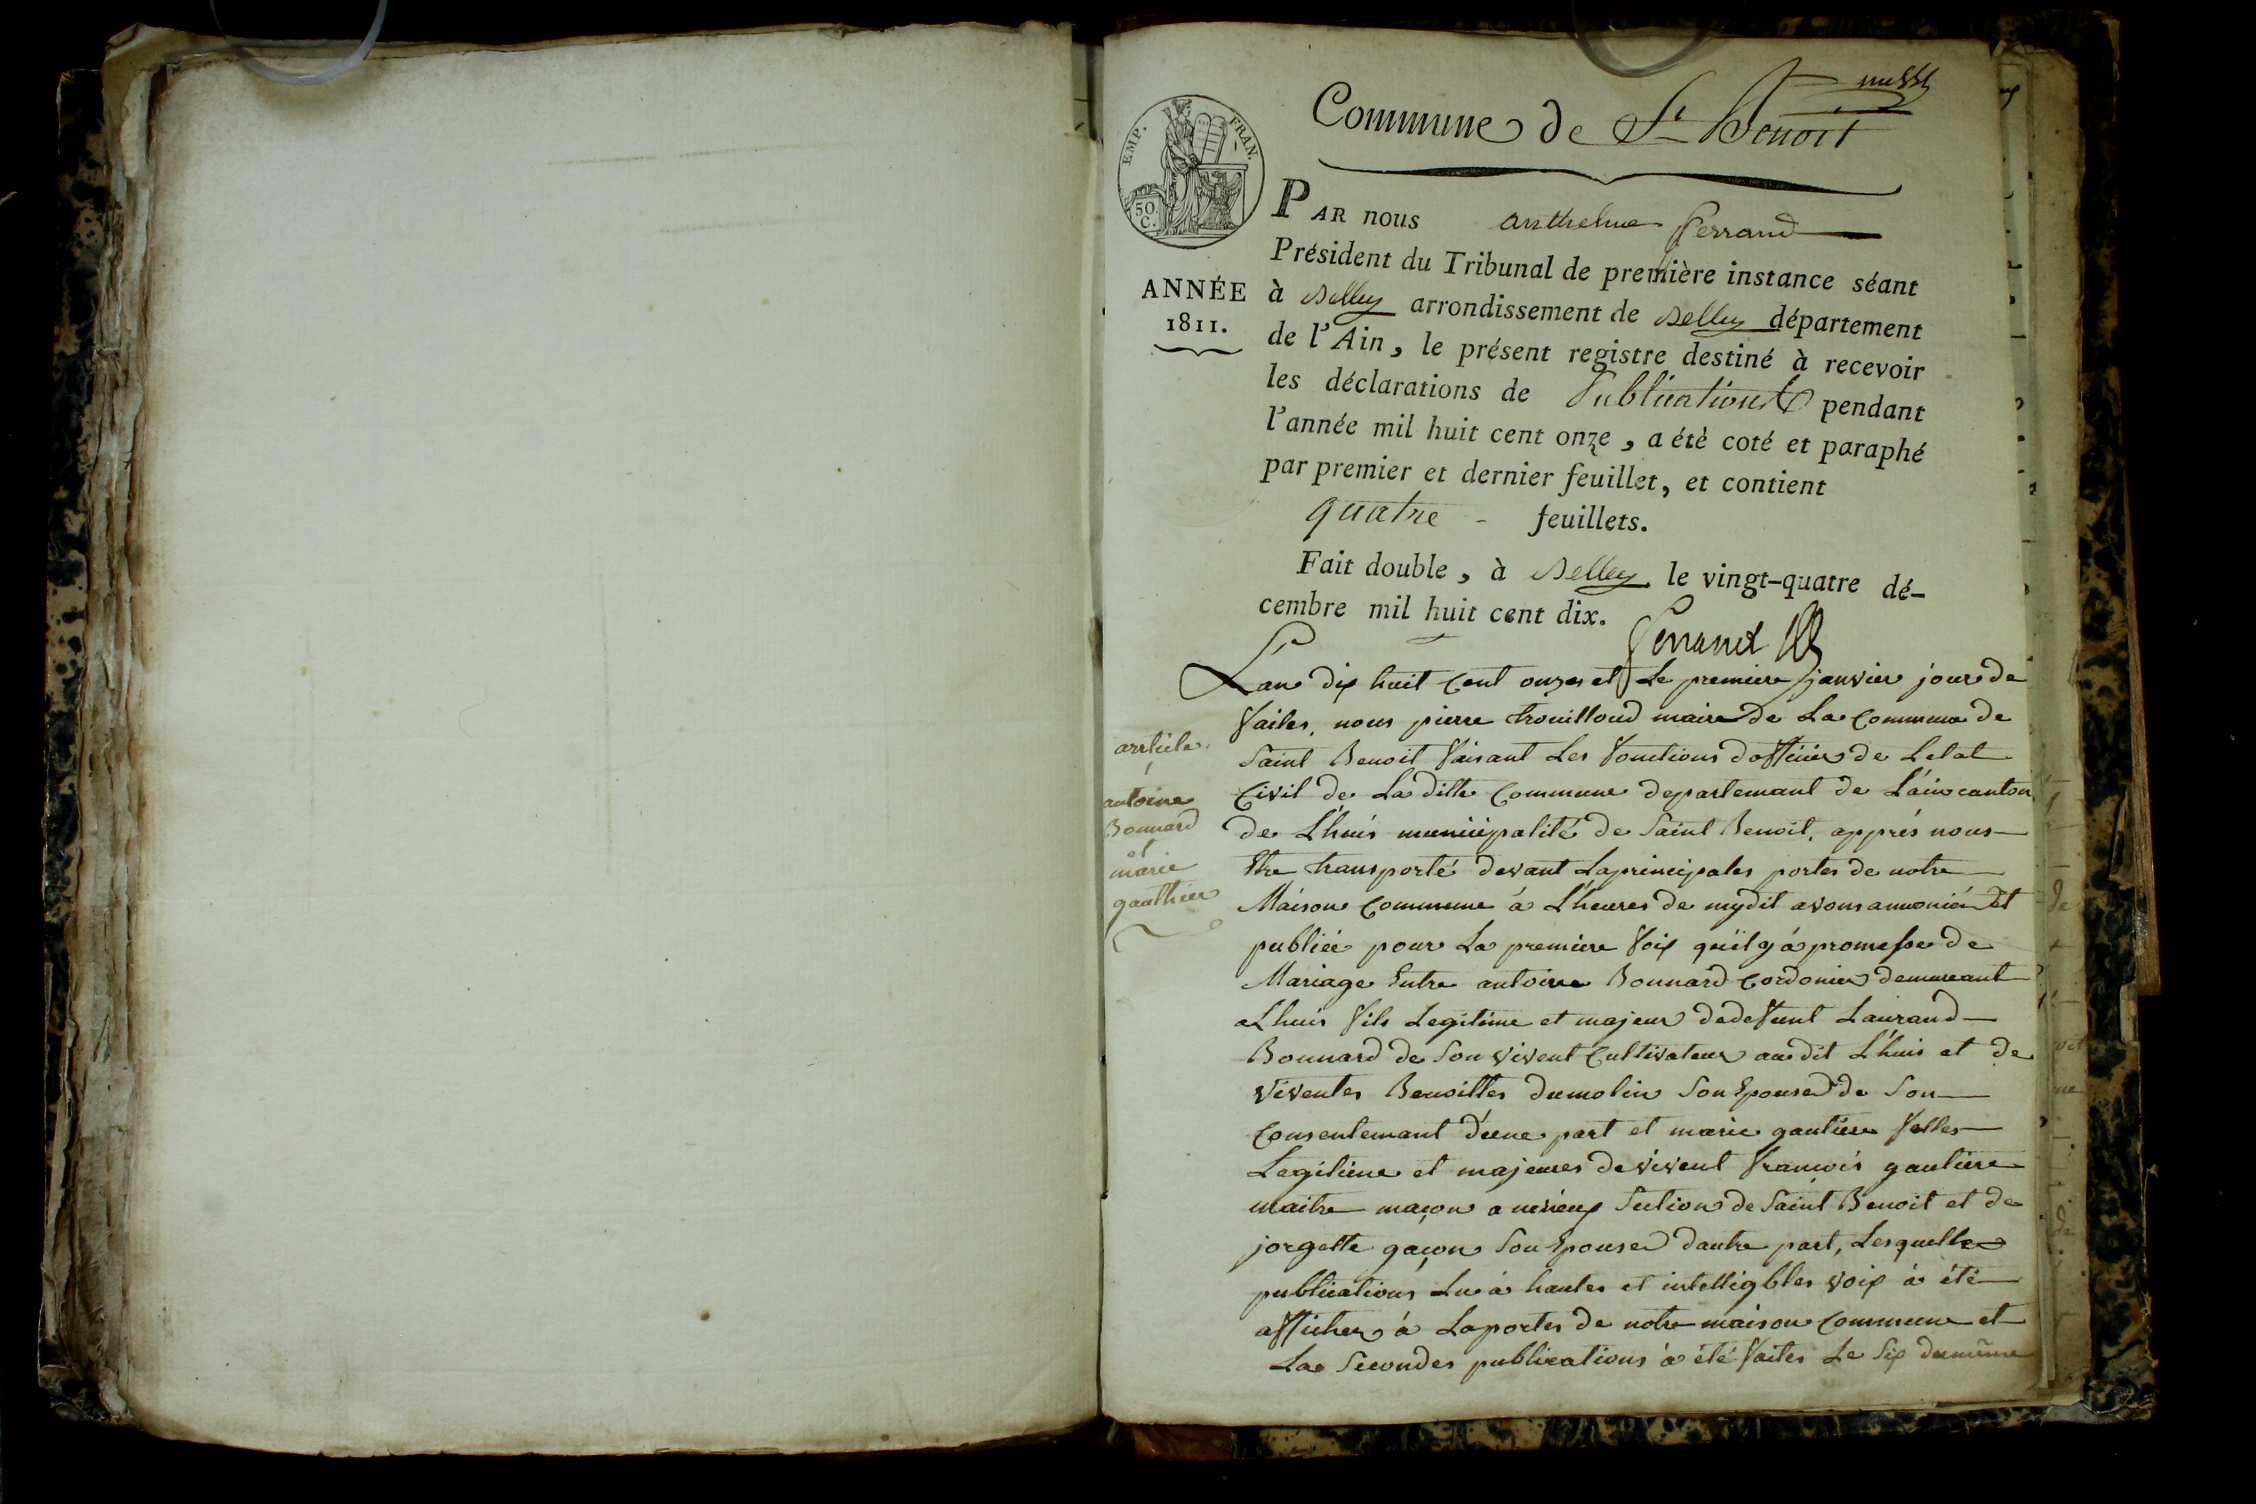 un
Commune de St Benoit
EMP. FRAN.
50
C.
ANNÉE
1811.
PAR nous anthelme ferrand
Président du Tribunal de première instance séant
à Belley arrondissement de Belley département
de l'Ain, le présent registre destiné à recevoir
les déclarations de Publications pendant
l'année mil huit cent onze, a étè coté et paraphé
par premier et dernier feuillet, et contient
quatre - feuillets.
Fait double, à Belley le vingt-quatre dé-
cembre mil huit cent dix.
ferrand
article
1
antoine
Bonnard
et
marie
gauthier
Lan dix huit Cent onzes et Le premiere janvier jour de
faites, nous pierre trouilloud maire de La Commune de
Saint Benoit faisant Les fonctions dofficier de Letat
Civil de La ditte Commune departemant de L'ain canton
de L'huis municipalité de Saint Benoit, apprés nous
Etre transporté devant La principales portes de notre
Maison Commune á L'heures de mydit avons annoncé Et
publiée pour La premiere foix qu'il y á promesse de
Mariage Entre antoine Bonnard Cordonier demeurant
a Lhuis fils Legitime et majeur de defunt Laurand
Bonnard de Son vivent Cultivateur au dit L'huis et de
viventes Benoittes dumolin Son Epouse de Son
Consentemant d'une part et marie gautiere felles
Legitime et majeures de vivent francois gautiere
maitre maçon a Section de Saint Benoit et de
jorgette gaçon Son Epouse dautre part, Lesquelles
publications Lu á hautes et intelligbles voix á été
afficher á La portes de notre maison Commune et
La Secondes publications á été faites Le Six du même